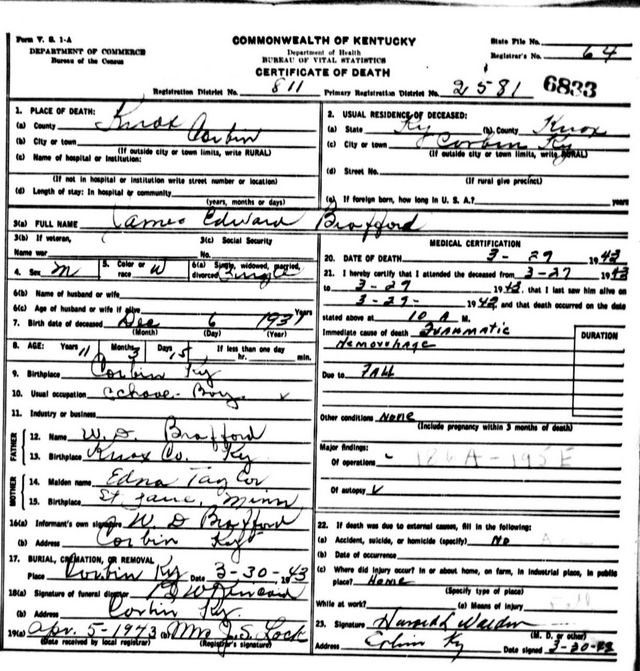 Form V. S. 1-A
DEPARTMENT OF COMMERCE
Bureau of the Census
COMMONWEALTH OF KENTUCKY
Department of Health
BUREAU OF VITAL STATISTICS
CERTIFICATE OF DEATH
State File No.
Registrar's No. 64
Registration District No. 811 Primary Registration District No. 2581 6833
1. PLACE OF DEATH:
(a) County Knox
(b) City or town Corbin
(If outside city or town limits, write RURAL)
(c) Name of hospital or institution:
(If not in hospital or institution write street number or location)
(d) Length of stay: In hospital or community
(years, months or days)
2. USUAL RESIDENCE OF DECEASED:
(a) State Ky (b) County Knox
(c) City or town Corbin Ky
(If outside city or town limits, write RURAL)
(d) Street No.
(If rural give precinct)
(e) If foreign born, how long in U. S. A.? years
3(a) FULL NAME James Edward Brafford
3(b) If veteran, 3(c) Social Security
Name war No.
4. Sex M 5. Color or race W 6(a) Single, widowed, married, divorced Single
6(b) Name of husband or wife
6(c) Age of husband or wife if alive Years
7. Birth date of deceased Dec 6 1931
(Month) (Day) (Year)
8. AGE: Years 11 Months 3 Days If less than one day
hr. min.
9. Birthplace Corbin Ky
10. Usual occupation School Boy
11. Industry or business
FATHER
12. Name W. D. Brafford
13. Birthplace Knox Co. Ky
MOTHER
14. Maiden name Edna Taylor
15. Birthplace Minn
16(a) Informant's own signature W D Brafford
(b) Address Corbin Ky
17. BURIAL, CREMATION, OR REMOVAL
Place Corbin Ky Date 3-30-1943
18(a) Signature of funeral director
(b) Address Corbin Ky.
19(a) Apr. 5-1943 (b) Mrs J. S. Lock
(Date received by local registrar) (Registrar's signature)
MEDICAL CERTIFICATION
20. DATE OF DEATH 3-29 1943
21. I hereby certify that I attended the deceased from 3-27 1943
to 3-29 1943, that I last saw him alive on
3-29- 1943, and that death occurred on the date
stated above at 10 A M.
Immediate cause of death Traumatic
Hemorrhage
DURATION
Due to FALL
Other conditions None
(Include pregnancy within 3 months of death)
Major findings:
Of operations 186A-195E
Of autopsy
22. If death was due to external causes, fill in the following:
(a) Accident, suicide, or homicide (specify) No
(b) Date of occurrence
(c) Where did injury occur? in or about home, on farm, in industrial place, in public
place? Home
(Specify type of place)
While at work? (e) Means of injury
23. Signature Harold L Walden
(M. D. or other)
Address Corbin Ky Date signed 3-30-43